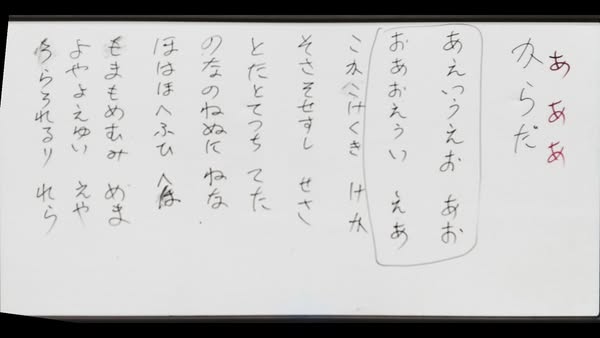 あああ
からだ
あえいうえお あお
おあおえうい えあ
こかこけくき けか
そさそせすし せさ
とたとてつち てた
のなのねぬに ねな
ほはほへふひ へは
もまもめむみ めま
よやよえゆい えや
ろらろれるり れら